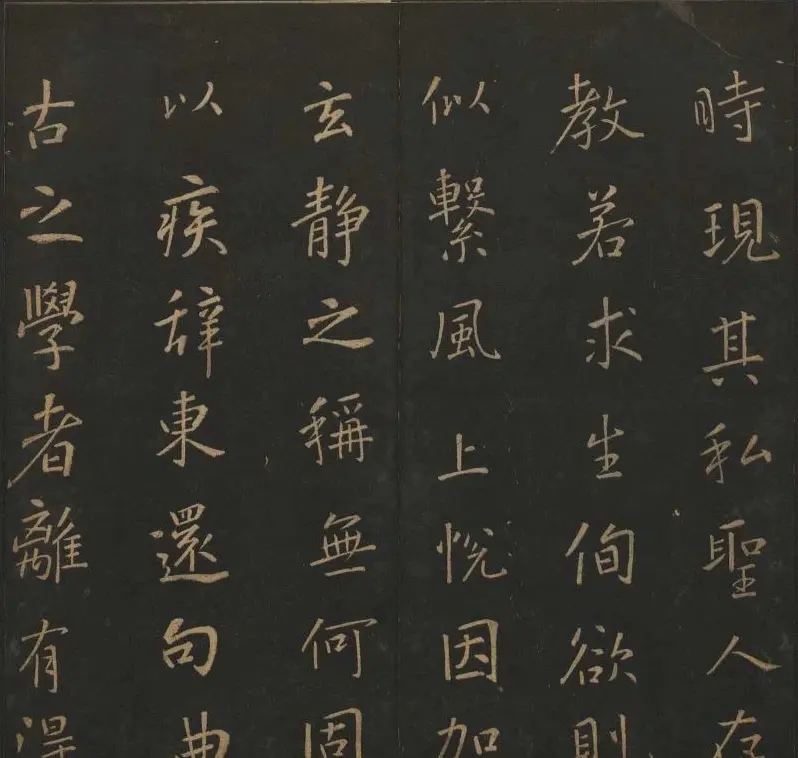 時現其私聖人存
教若求生侚欲則
似繫風上悅因加
玄靜之稱無何固
以疾辭東還句曲
古之學者離有得